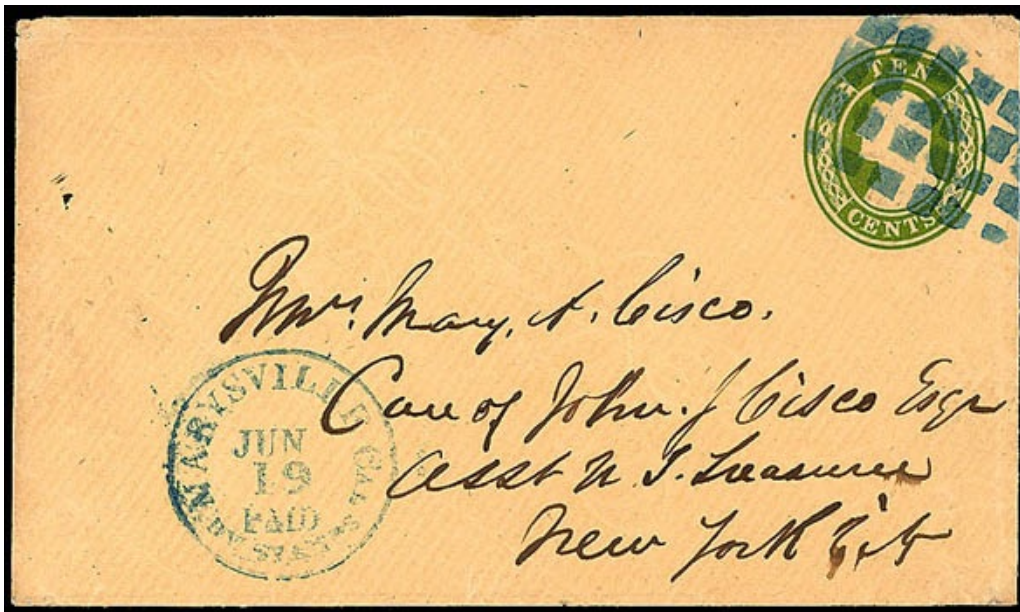 TEN
CENTS
Mrs. Mary. A. Cisco.
Care of John. J Cisco Esqr
Asst U. S. Treasurer
New York City
MARYSVILLE CAL.
JUN
19
PAID